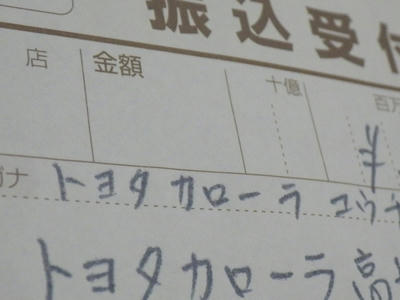 振込受付
店 金額 十億 百万
¥
ガナ トヨタ カローラ コウチ
トヨタ カローラ 高